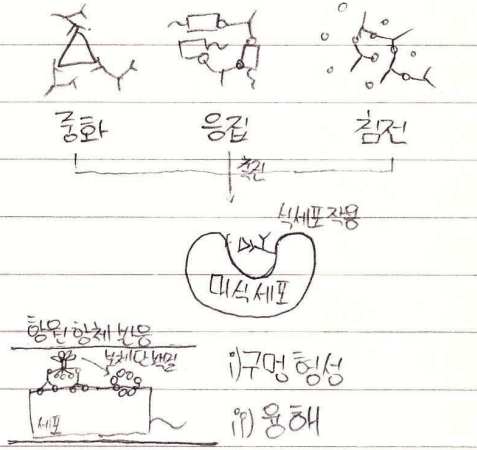 중화 응집 침전
촉진
식세포작용
대식세포
항원 항체 반응
보체단백질
세포
i) 구멍 형성
ii) 용해